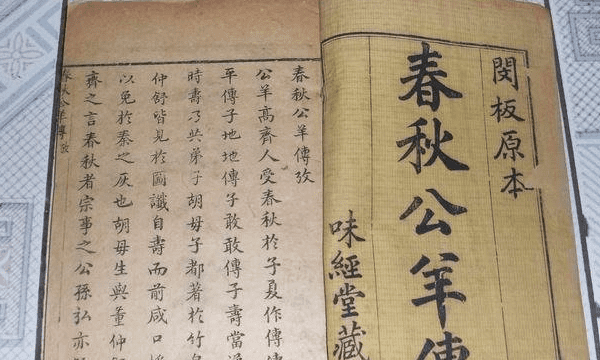 閔板原本
春秋公羊傳
味經堂藏
春秋公羊傳攷
公羊高齊人受春秋於子夏作傳傳
平傳子地地傳子敢敢傳子壽當漢
時壽乃共弟子胡母子都著於竹帛
仲舒皆見於圖讖自壽而前咸口
以免於秦之灰也胡母生與董仲舒
齊之言春秋者宗事之公孫弘亦
春秋公羊傳攷